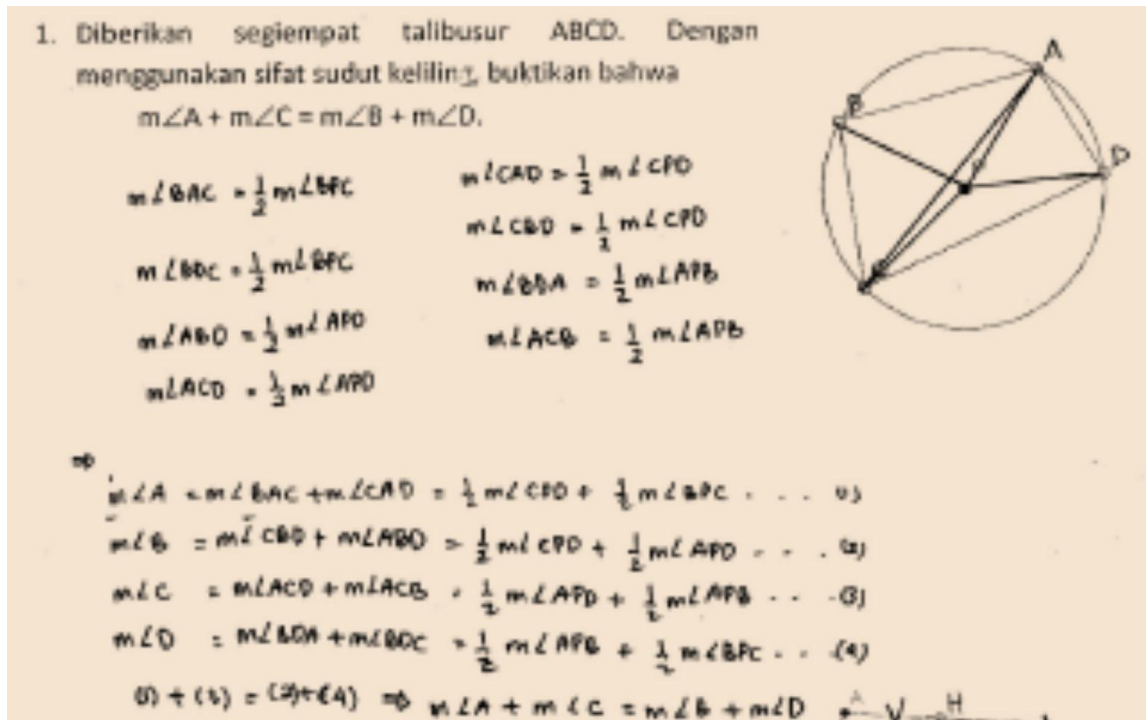 1. Diberikan segiempat talibusur ABCD. Dengan
menggunakan sifat sudut keliling, buktikan bahwa
m∠A + m∠C = m∠B + m∠D.
m∠BAC = 1/2 m∠BPC
m∠BDC = 1/2 m∠BPC
m∠ABD = 1/2 m∠APD
m∠ACD = 1/2 m∠APD
m∠CAD = 1/2 m∠CPD
m∠CBD = 1/2 m∠CPD
m∠BDA = 1/2 m∠APB
m∠ACB = 1/2 m∠APB
A
B
D
⇒
m∠A = m∠BAC + m∠CAD = 1/2 m∠CPD + 1/2 m∠BPC . ... (1)
m∠B = m∠CBD + m∠ABD = 1/2 m∠CPD + 1/2 m∠APD . . . . (2)
m∠C = m∠ACD + m∠ACB = 1/2 m∠APD + 1/2 m∠APB . . . (3)
m∠D = m∠BDA + m∠BDC = 1/2 m∠APB + 1/2 m∠BPC . . . (4)
(1) + (3) = (2)+(4) ⇒ m∠A + m∠C = m∠B + m∠D
H